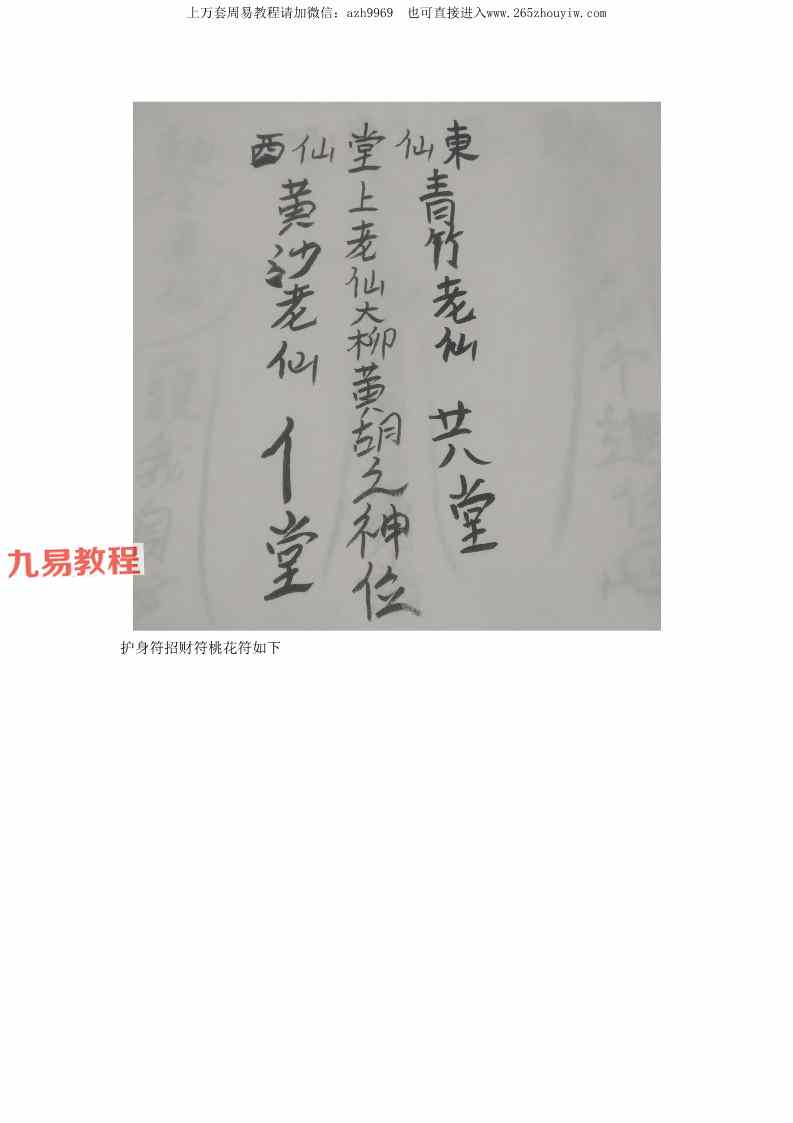 上万套周易教程请加微信：azh9969 也可直接进入www.265zhouyiw.com
西仙堂仙東
青竹老仙 廿八堂
上老仙大柳黄胡之神位
黄沙老仙 堂
九易教程
护身符招财符桃花符如下